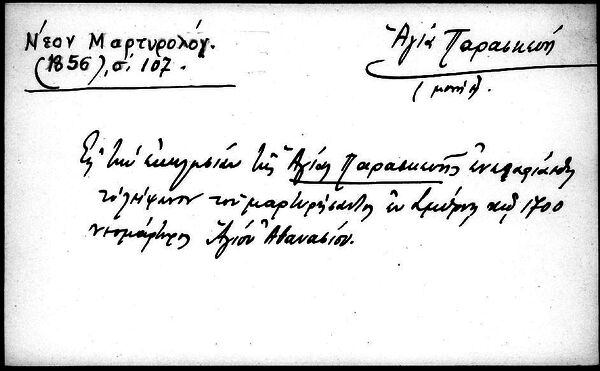 Νέον Μαρτυρολόγ.
(1856), σ. 107.
Ἁγία Παρασκευή
(μονή).
Εἰς τὴν ἐκκλησίαν τῆς Ἁγίας Παρασκευῆς ἐνεταφιάσθη
τὸ λείψανον τοῦ μαρτυρήσαντος ἐν Σμύρνῃ τῷ 1700
νεομάρτυρος Ἁγίου Ἀθανασίου.